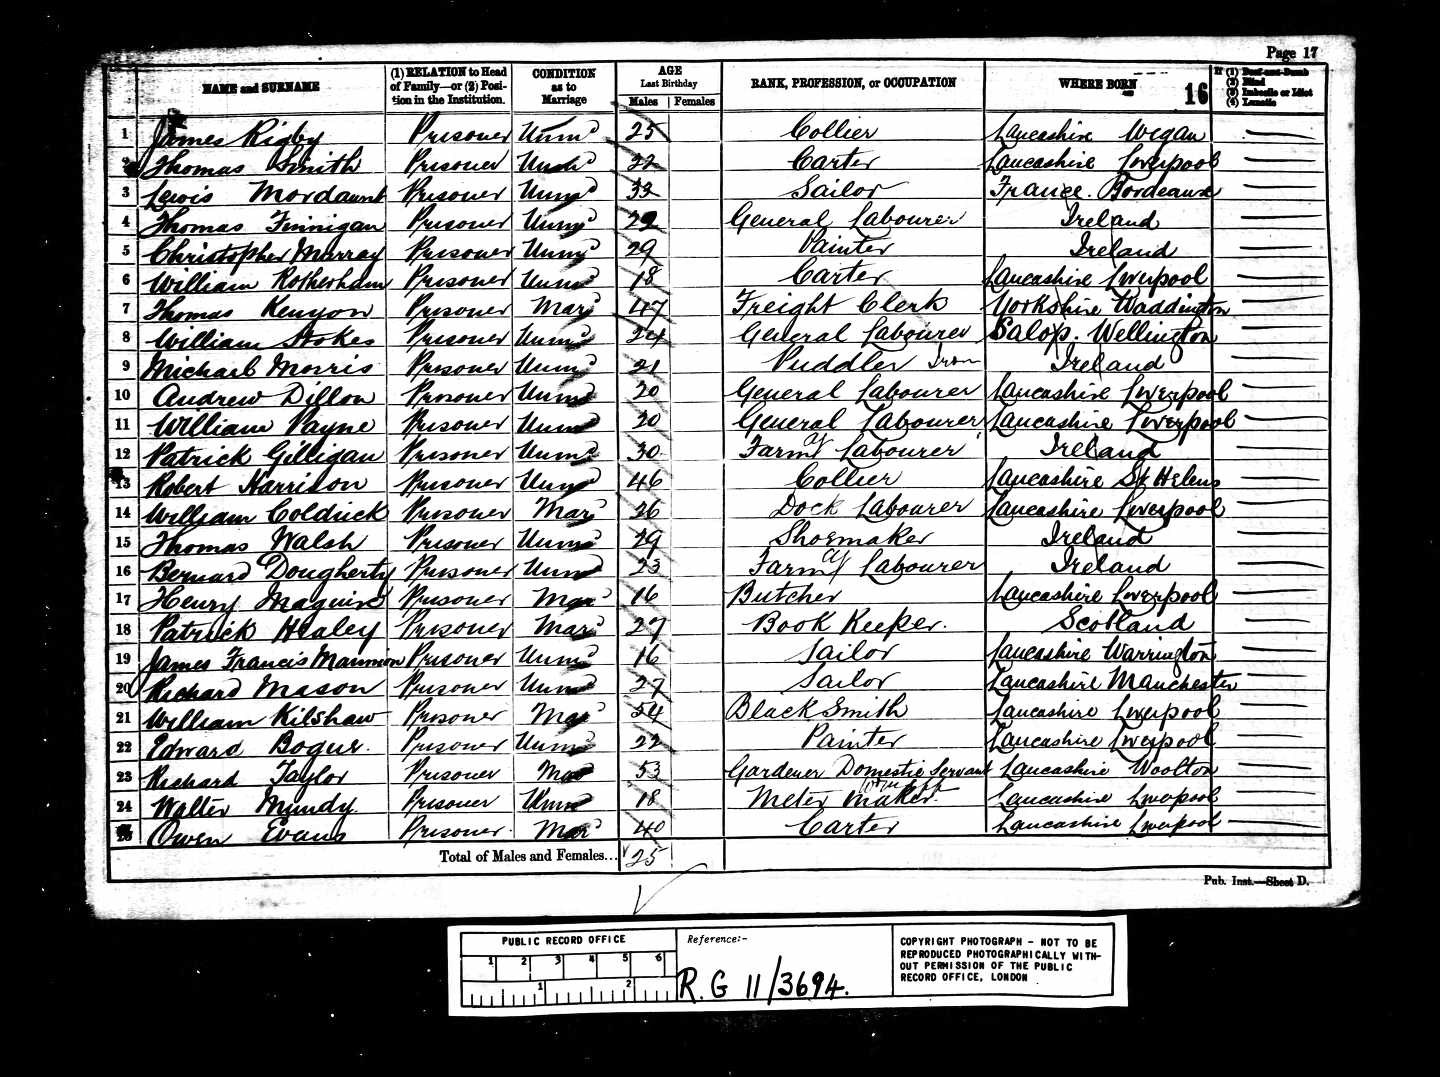 Page 17
NAME and SURNAME (1) RELATION to Head of Family—or (2) Position in the Institution. CONDITION as to Marriage AGE Last Birthday Males Females RANK, PROFESSION, or OCCUPATION WHERE BORN 16 If (1) Deaf-and-Dumb (2) Blind (3) Imbecile or Idiot (4) Lunatic
1 James Rigby Prisoner Unmd 25 Collier Lancashire Wigan
2 Thomas Smith Prisoner 22 Carter Lancashire Liverpool
3 Lewis Mordaunt Prisoner Unmd 33 Sailor France. Bordeaux
4 Thomas Finnigan Prisoner Unmd General Labourer Ireland
5 Christopher Murray Prisoner Unmd 29 Painter Ireland
6 William Rotherham Prisoner Unmd 18 Carter Lancashire Liverpool
7 Thomas Kenyon Prisoner Mard 47 Freight Clerk Yorkshire Waddington
8 William Stokes Prisoner Unmd 24 General Labourer Salop. Wellington
9 Michael Morris Prisoner Unmd 21 Puddler Iron Ireland
10 Andrew Dillon Prisoner Unmd 20 General Labourer Lancashire Liverpool
11 William Payne Prisoner Unmd 20 General Labourer Lancashire Liverpool
12 Patrick Gilligan Prisoner Unmd 30 Farm Labourer Ireland
13 Robert Harrison Prisoner Unmd 46 Collier Lancashire St Helens
14 William Coldrick Prisoner Mard 26 Dock Labourer Lancashire Liverpool
15 Thomas Walsh Prisoner Unmd 29 Shoemaker Ireland
16 Bernard Dougherty Prisoner Unmd 23 Farm Labourer Ireland
17 Henry Maguire Prisoner Mard 16 Butcher Lancashire Liverpool
18 Patrick Healey Prisoner Mard 27 Book Keeper. Scotland
19 James Francis Mannion Prisoner Unmd 16 Sailor Lancashire Warrington
20 Richard Mason Prisoner Unmd 27 Sailor Lancashire Manchester
21 William Kilshaw Prisoner Mard 54 Black Smith Lancashire Liverpool
22 Edward Bogue. Prisoner Unmd 22 Painter Lancashire Liverpool
23 Richard Taylor Prisoner Mard 53 Gardener Domestic Servant Lancashire Woolton
24 Walter Mundy Prisoner Unmd 18 Meter Maker Lancashire Liverpool
25 Owen Evans Prisoner. Mard 40 Carter Lancashire Liverpool
Total of Males and Females... 25
Pub. Inst.—Sheet D.
PUBLIC RECORD OFFICE
1 2 3 4 5 6
1 2
Reference:-
R.G 11/3694.
COPYRIGHT PHOTOGRAPH - NOT TO BE
REPRODUCED PHOTOGRAPHICALLY WITH-
OUT PERMISSION OF THE PUBLIC
RECORD OFFICE, LONDON